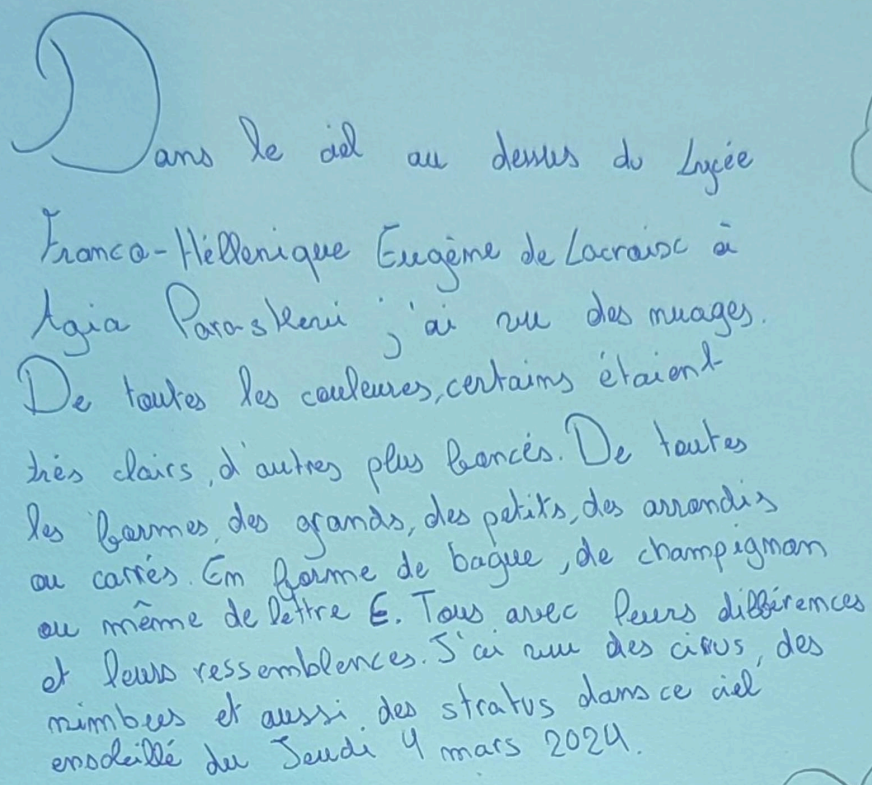 Dans le ciel au dessus du Lycée
Franco-Héllenique Eugène de Lacroix à
Agia Paraskevi j'ai vu des nuages.
De toutes les couleures, certains étaient
très clairs, d'autres plus foncés. De toutes
les formes, des grands, des petits, des arrondis
ou carrés. En forme de bague, de champignon
ou même de lettre E. Tous avec leurs différences
et leurs ressemblences. J'ai vu des cirus, des
nimbus et aussi des stratus dans ce ciel
ensoleillé du Jeudi 4 mars 2024.